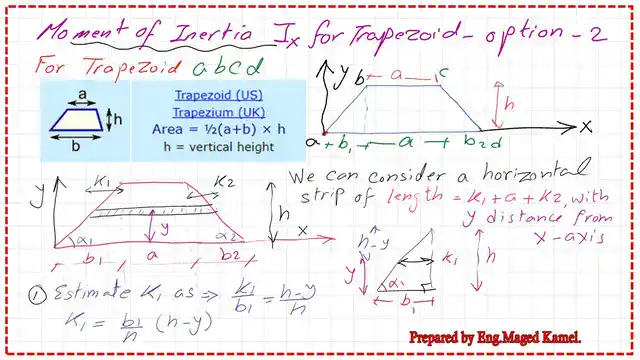 Moment of Inertia Ix for Trapezoid - option - 2
For Trapezoid abcd
a
h
b
Trapezoid (US)
Trapezium (UK)
Area = ½(a+b) × h
h = vertical height
y
b
a
c
h
a
b1
a
b2
d
x
We can consider a horizontal
strip of length = K1 + a + K2, with
y distance from
x - axis
y
K1
K2
h
y
α1
α2
x
b1
a
b2
h-y
y
K1
h
α1
b1
① Estimate K1 as ⇒ K1/b1 = h-y/h
K1 = b1/h (h-y)
Prepared by Eng.Maged Kamel.